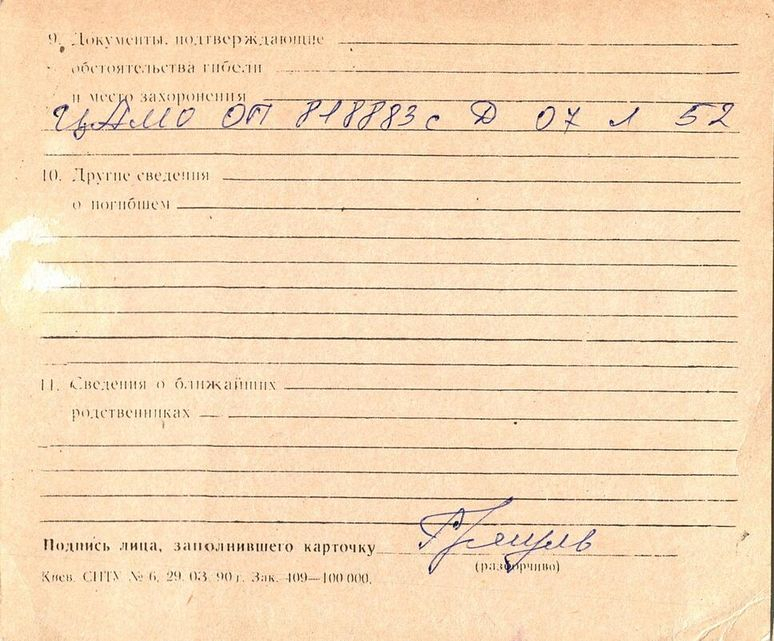 9. Документы, подтверждающие
обстоятельства гибели
и место захоронения
ЦАМО ОП 818883с Д 07 Л 52
10. Другие сведения
о погибшем
11. Сведения о ближайших
родственниках
Подпись лица, заполнившего карточку
(разборчиво)
Киев. СПТУ № 6. 29. 03. 90 г. Зак. 409—100 000.